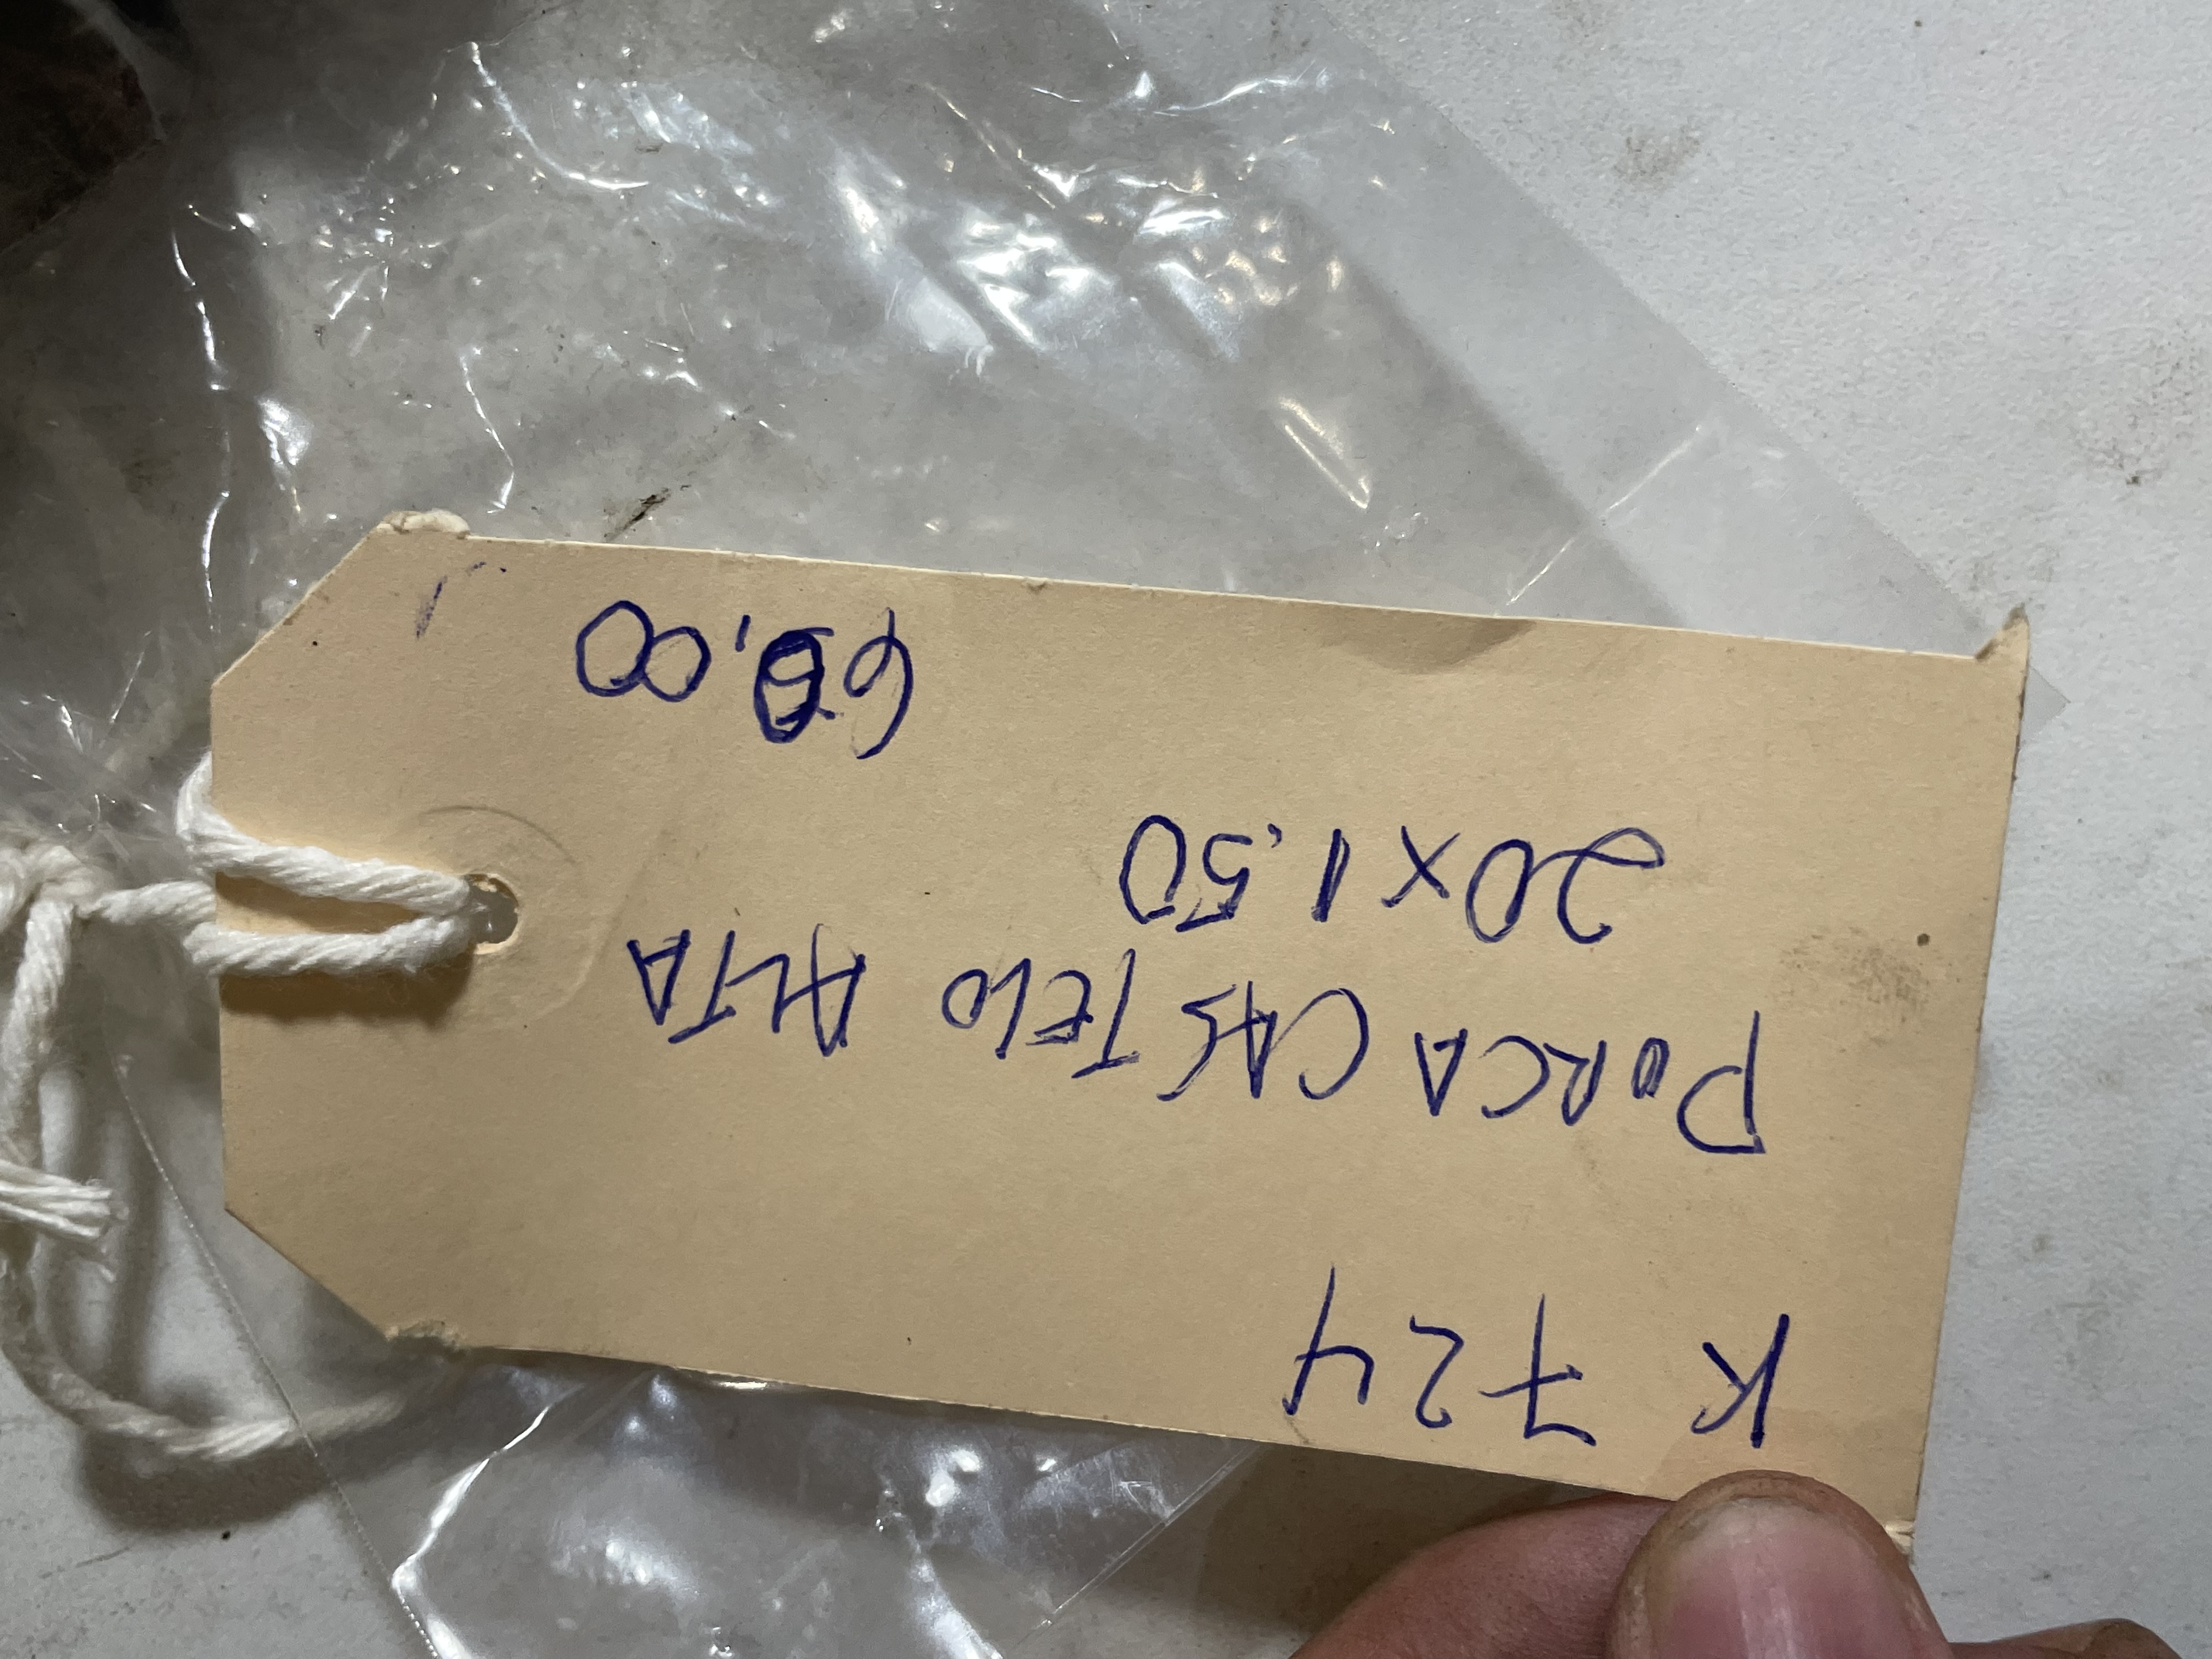 K 724
PORCA CASTELO ALTA
20x1.50
60,00